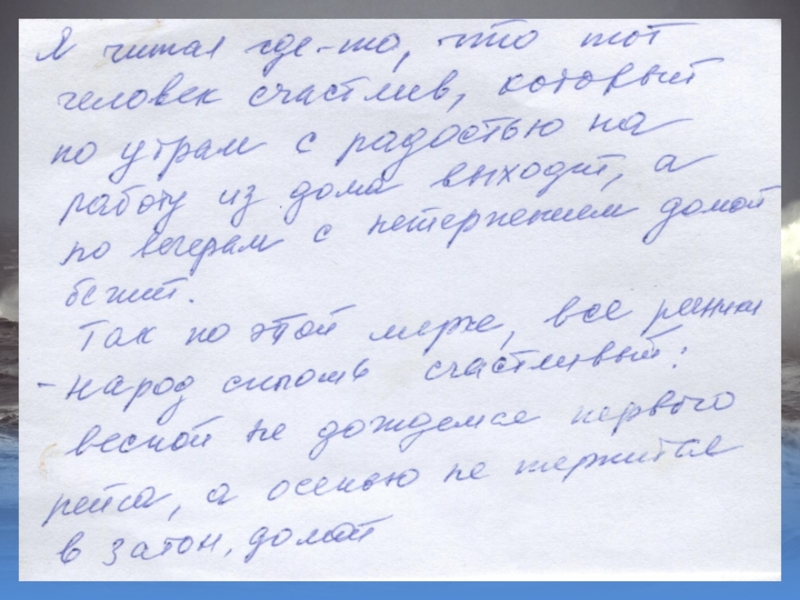 Я читал где-то, что тот
человек счастлив, который
по утрам с радостью на
работу из дома выходит, а
по вечерам с нетерпением домой
бежит.
Так по этой мерке, все речники
- народ сплошь счастливый:
весной не дождемся первого
рейса, а осенью не терпится
в затон, домой